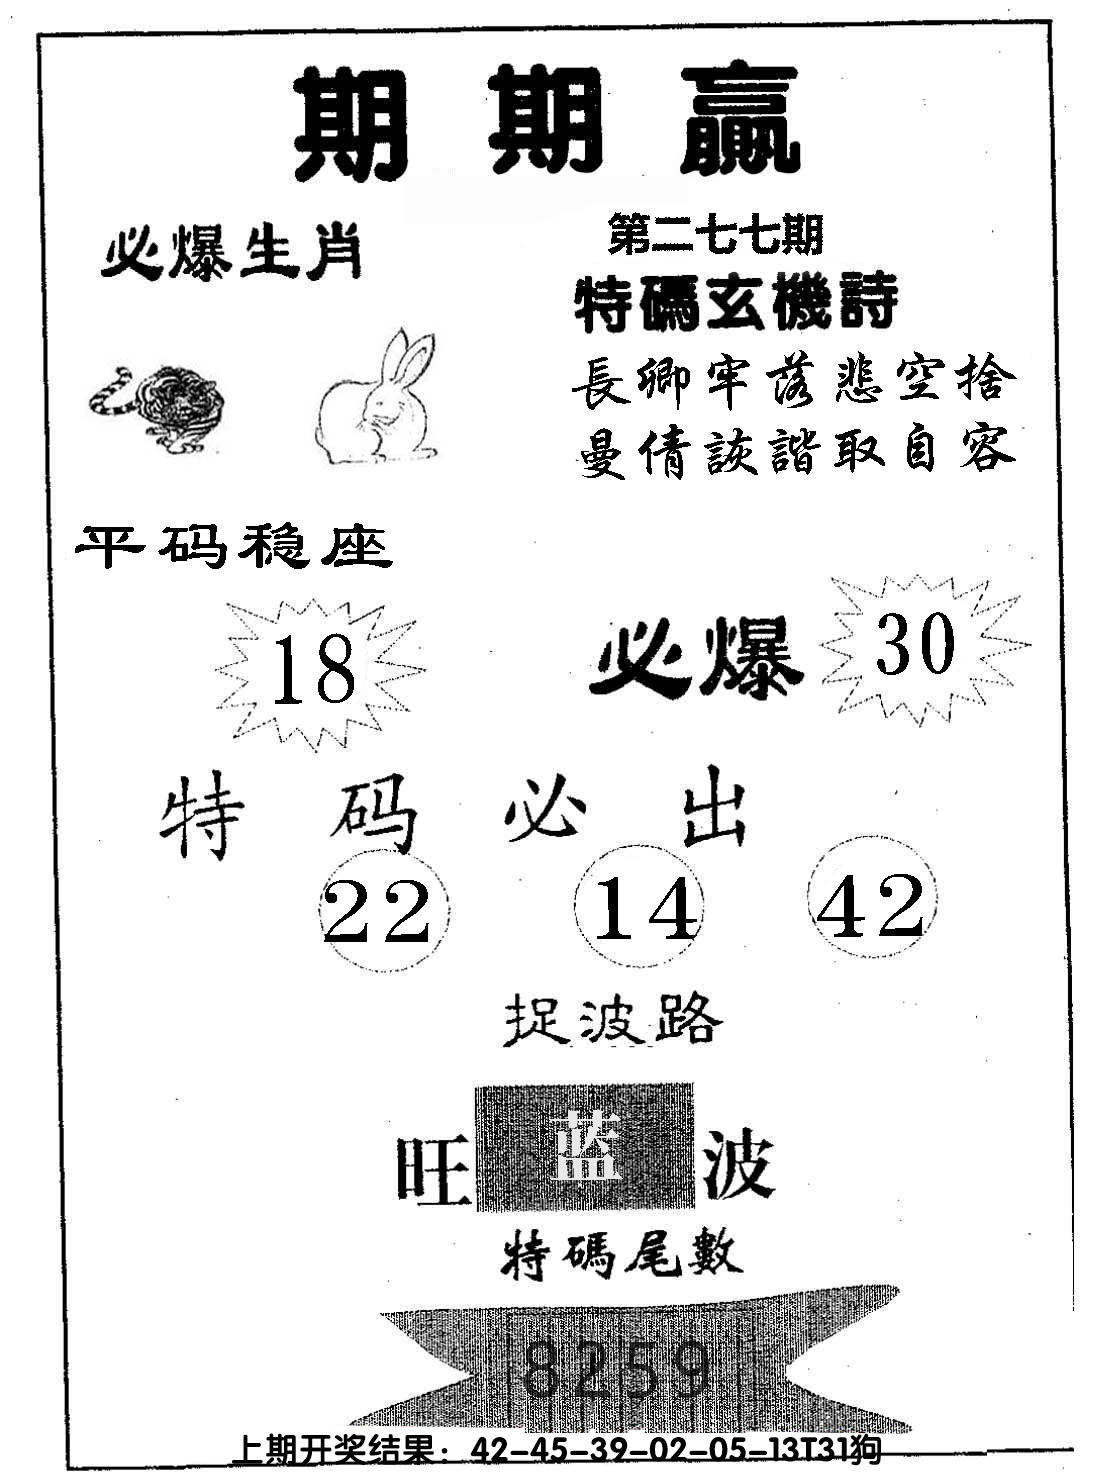 期期赢
必爆生肖
第二七七期
特碼玄機詩
長卿牢落悲空捨
曼倩詼諧取自容
平码稳座
18
必爆 30
特码必出
22 14 42
捉波路
旺蓝波
特碼尾數
8259
上期开奖结果：42-45-39-02-05-13T31狗